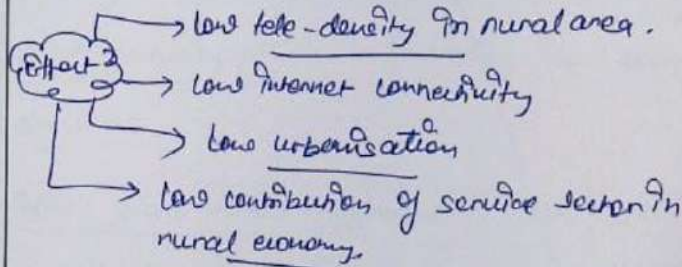 Effect
→ Low tele-density in rural area.
→ Low internet connectivity
→ Low urbanisation
→ Low contribution of service sector in
rural economy.